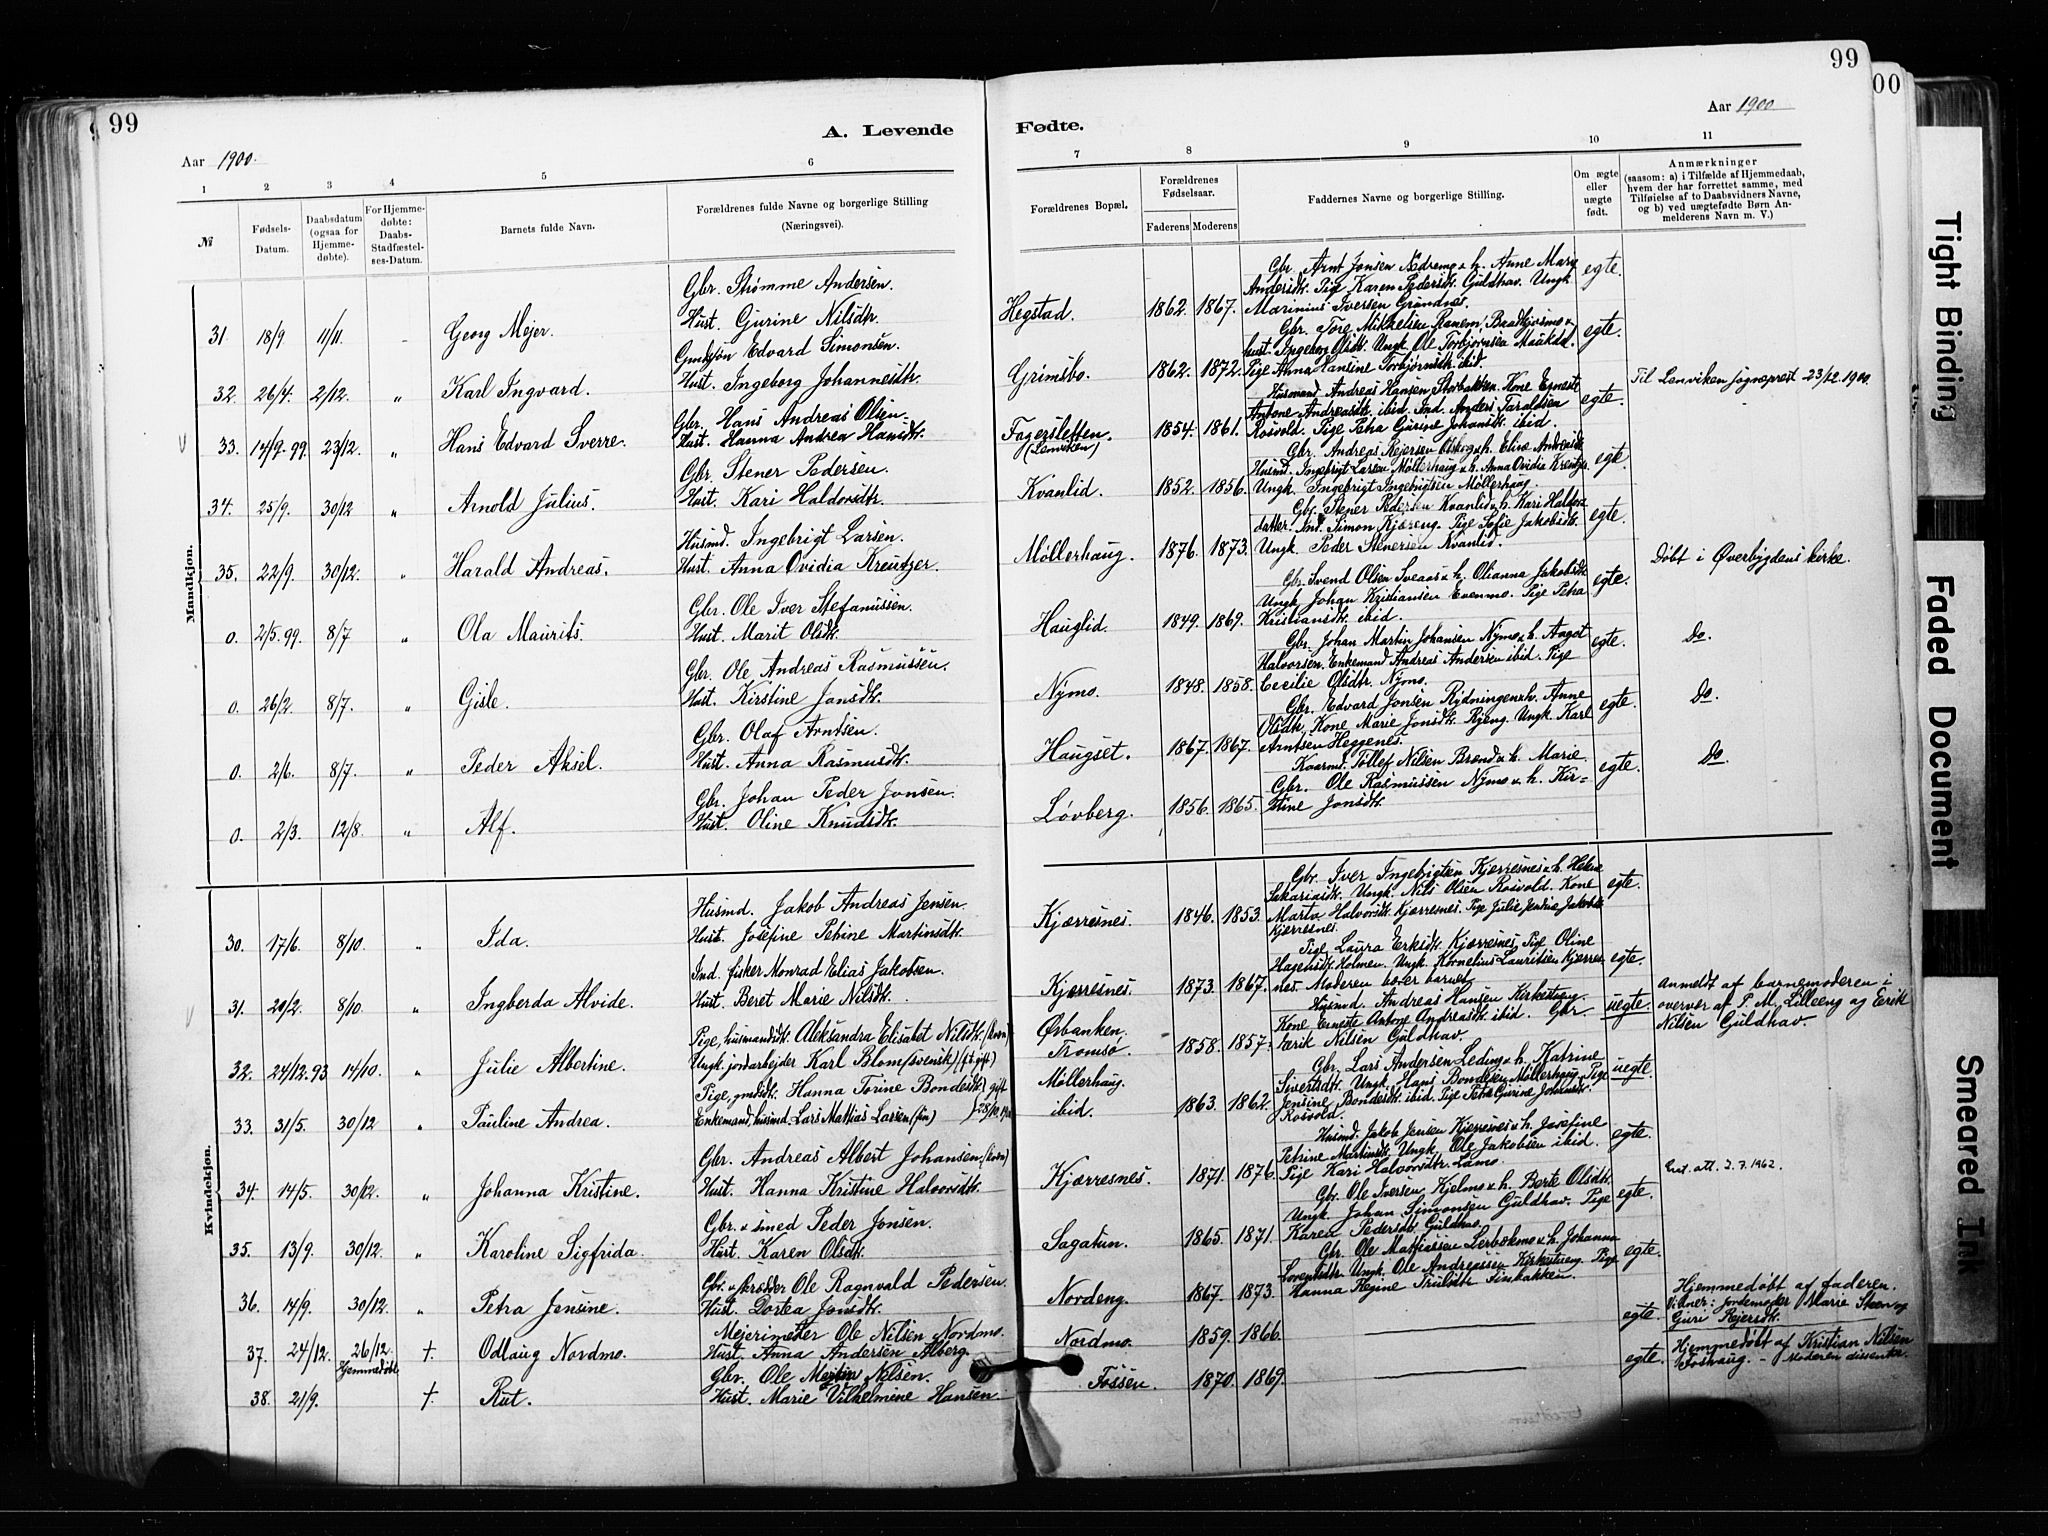 99
99
00
A. Levende
Fødte.
Aar 1900.
Aar 1900
1 2 3 4 5 6
7 8 9 10 11
№
Fødsels-Datum.
Daabsdatum (ogsaa for Hjemmedøbte).
For Hjemmedøbte: Daabs-Stadfæstelses-Datum.
Barnets fulde Navn.
Forældrenes fulde Navne og borgerlige Stilling
(Næringsvei).
Forældrenes Bopæl.
Forældrenes Fødselsaar.
Faderens Moderens
Faddernes Navne og borgerlige Stilling.
Om ægte eller uægte født.
Anmærkninger
(saasom: a) i Tilfælde af Hjemmedaab, hvem der har forrettet samme, med Tilføielse af to Daabsvidners Navne, og b) ved uægtefødte Børn Anmelderens Navn m. V.)
Mandkjøn.
Gbr. Strømme Andersen.
31. 18/9 11/11 Georg Mejer. Hust. Gurine Nilsdtr. Hegstad. 1862. 1867. egte.
Gbr. Arnt Jonsen Nedremo & h. Anne Mary
Andersdtr. Pige Karen Pedersdtr. Guldhav. Ungk.
Marinius Iversen Grundnes.
Gmdsøn Edvard Simonsen.
32. 26/4. 2/12. " Karl Ingvard. Hust. Ingeborg Johannesdtr. Grimsbo. 1862. 1872. egte.
Gbr. Tore Mikkelsen
hust. Ingeborg Olsdtr. Ungk. Ole Torbjørnsen
Pige Anna Hansine Torbjørnsdtr. ibid.
Til Lenviken sogneprest 23/12.1900.
Gbr. Hans Andreas Olsen.
33. 14/9.99. 23/12. " Hans Edvard Sverre. Hust. Hanna Andrea Hansdtr. Fagersletten. (Lenviken) 1854. 1861. egte.
Husmand Andreas Hansen Storbakken. Kone Erneste
Antone Andreasdtr. ibid. Ind. Anders Taraldsen
Rosvold. Pige Petra Gurine Johansdtr. ibid.
Gbr. Stener Pedersen.
34. 25/9. 30/12 " Arnold Julius. Hust. Kari Haldorsdtr. Kvanlid. 1852. 1856. egte.
Gbr. Andreas Rejersen & h. Elise Andreasdtr.
Husmd. Ingebrigt Larsen Møllerhaug & h. Anna Ovidia Kreutzer
Ungk. Ingebrigt Ingebrigtsen Møllerhaug.
Husmd. Ingebrigt Larsen.
35. 22/9. 30/12. " Harald Andreas. Hust. Anna Ovidia Kreutzer. Møllerhaug. 1876. 1873. egte.
Gbr. Stener Pedersen Kvanlid & h. Kari Haldors-
datter. Ind. Simon Kjæreng. Pige Sofie Jakobsdtr.
Ungk. Peder Stenersen Kvanlid.
Døbt i Øverbygdens kirke.
Gbr. Ole Iver Stefanussen.
0. 2/5.99. 8/7 " Ola Maurits. Hust. Marit Olsdtr. Hauglid. 1849. 1869. egte.
Gbr. Svend Olsen Sveaas & h. Olianna Jakobsdtr.
Ungk. Johan Kristiansen Evenmo. Pige Petra
Kristiansdtr. ibid.
Do.
Gbr. Ole Andreas Rasmussen.
0. 26/2. 8/7. " Gisle. Hust. Kirstine Jonsdtr. Nymo. 1848. 1858. egte.
Gbr. Johan Martin Johansen Nymo & h. Aagot
Halvorsen. Enkemand Andreas Andersen ibid. Pige
Cecilie Olsdtr. Nymo.
Do.
Gbr. Olaf Arntsen.
0. 2/6. 8/7. " Peder Aksel. Hust. Anna Rasmusdtr. Haugset. 1867. 1867. egte.
Gbr. Edvard Jonsen Rydningen & h. Anne
Olsdtr. Kone Marie Jonsdtr. Rjeng. Ungk. Karl
Arntsen Heggenes.
Do.
Gbr. Johan Peder Jonsen.
0. 2/3. 12/8. " Alf. Hust. Oline Knudsdtr. Løvberg. 1856. 1865. egte.
Kvarmd. Tollef Nilsen Brend & h. Marie.
Gbr. Ole Rasmussen Nymo & h. Kir=
stine Jonsdtr.
Kvindekjøn.
Husmd. Jakob Andreas Jensen.
30. 17/6 8/10. " Ida. Hust. Josefine Petrine Martinsdtr. Kjærresnes. 1846. 1853. egte.
Gbr. Iver Ingebrigtsen Kjærresnes & h. Helene
Sakariasdtr. Ungk. Nils Olsen Rosvold. Kone
Marta Halvorsdtr. Kjærresnes. Pige Julie Jensine Jakobsdtr.
Kjerresnes.
Ind. fisker Monrad Elias Jakobsen.
31. 20/2. 8/10. " Ingberda Alvide. Hust. Beret Marie Nilsdtr. Kjærresnes. 1873. 1867. egte.
Pige Laura Eriksdtr. Kjærresnes, Pige Oline
Hagensdtr. Holmen. Ungk. Kornelius Lauritsen Kjærres-
nes. Moderen bærer barnet.
Pige, husmandsdtr. Aleksandra Elisabet Nilsdtr. (kvæn) Ørbanken.
32. 24/12.93 14/10. " Julie Albertine. Ungk. jordarbejder Karl Blom (svensk) (f.t. gift) Tromsø. 1858. 1857. uegte.
Husmd. Andreas Hansen Kirkestueng.
Kone Erneste Antone Andreasdtr. ibid. Gbr
Erik Nilsen Guldhav.
Anmeldt af barnemoderen i
overvær af P. M. Lilleeng og Erik
Nilsen Guldhav.
Pige, gmdsdtr. Hanna Torine Bondesdtr. } gift Møllerhaug.
33. 31/5. 30/12 " Pauline Andrea. Enkemand, husmd. Lars Mathias Larsen (fin) ibid. 1863. 1862. uegte.
Gbr. Lars Andersen Leding & h. Katrine
Sivertsdtr. Ungk. Hans Bondesen Møllerhaug. Pige
Jensine Bondesdtr. ibid. Pige Petra Gurine Johansdtr.
Rosvold.
Gbr. Andreas Albert Johansen. (kvæn)
34. 14/5. 30/12. " Johanna Kristine. Hust. Hanna Kristine Halvorsdtr. Kjærresnes. 1871. 1876. egte.
Husmd. Jakob Jensen Kjærresnes & h. Josefine
Petrine Martinsdtr. Ungk. Ole Jakobsen ibid.
Pige Kari Halvorsdtr. Lamo.
att. 2.7.1962.
Gbr. & smed Peder Jonsen.
35. 13/9. 30/12. " Karoline Sigfrida. Hust. Karen Olsdtr. Sagatun. 1865. 1871. egte.
Gbr. Ole Iversen Kjelmo & h. Berte Olsdtr.
Ungk. Johan Simonsen Guldhav. Pige
Karen Pedersdtr. Guldhav.
Gbr. & Ole Ragnvald Pedersen.
36. 14/9. 30/12. " Petra Jensine. Hust. Dortea Jonsdtr. Nordeng. 1867. 1873. egte.
Gbr. Ole Mathiassen Lerbekmo & h. Johanna
Lorentsdtr. Ungk. Ole Andreassen Kirkestueng. Pige
Hanna Regine Trulsdtr. Finbakken.
Mejerimester Ole Nilsen Nordmo.
37. 24/12. 26/12. Hjemmedøbt † Odlaug Nordmo. Hust. Anna Andersen Alberg. Nordmo. 1859. 1866. egte.
Hjemmedøbt af faderen.
Vidner: Jordemoder Marie Steen og
Guri Rejersdtr.
Gbr. Ole Martin Nilsen.
38. 21/9. † Rut. Hust. Marie Vilhelmine Hansen Fossen. 1870. 1869. egte.
Hjemmedøbt af Kristian Nilsen
Foshaug. – Moderen dissenter.
Tight Binding
Faded Document
Smeared Ink